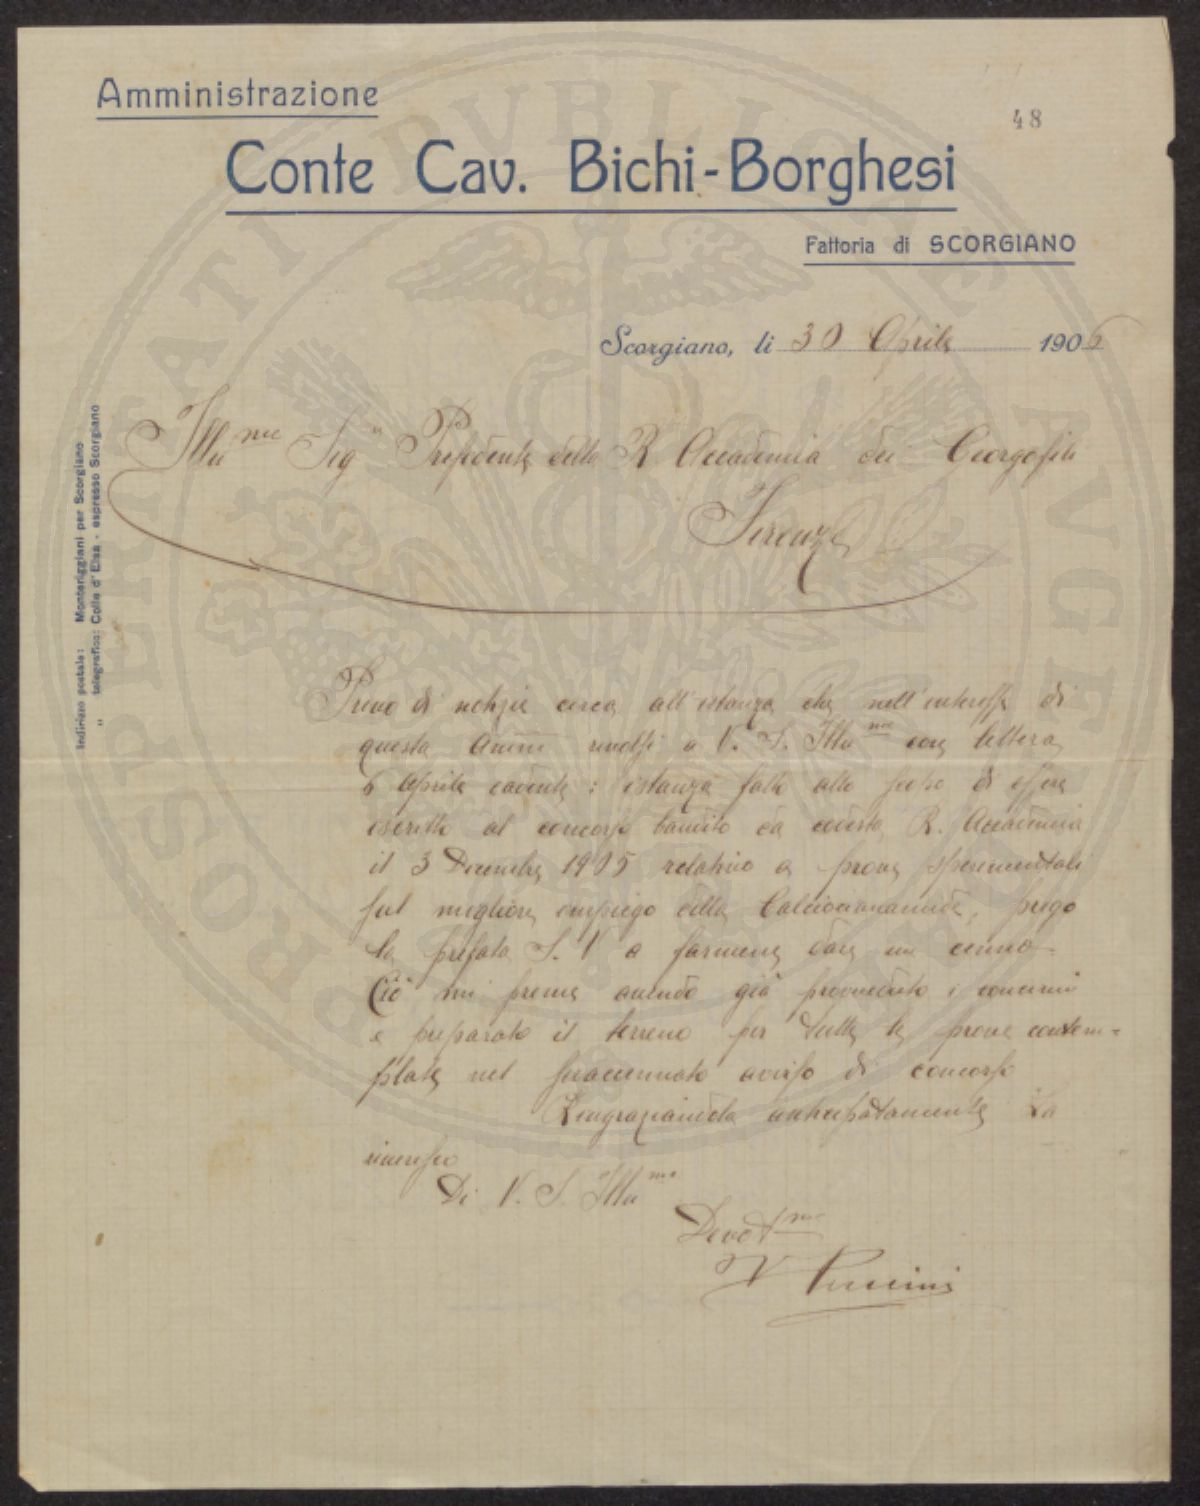 Amministrazione
48
Conte Cav. Bichi-Borghesi
Fattoria di SCORGIANO
Scorgiano, li 30 Aprile 1906
Indirizzo postale: Monteriggioni per Scorgiano
" telegrafico: Colle d'Elsa - espresso Scorgiano
Illu^mo Sig^r Presidente della R Accademia dei Georgofili
Firenze
Privo di notizie circa all'istanza che nell'interesse di
questa Ammne rivolsi a V. S. Illu^ma con lettera
6 Aprile cadente: istanza fatta allo scopo di essere
iscritto al concorso bandito da codesta R. Accademia
il 3 Dicembre 1905 relativo a prove sperimentali
sul migliore impiego della Calciocianamide, prego
la prefata S. V a farmene dare un cenno
Ciò mi preme avendo già provveduto i concimi
e preparato il terreno per tutte le prove contem=
plate nel suaccennato avviso di concorso
Ringraziandola anticipatamente La
riverisco
Di V. S. Illu^ma
Devot^mo
V Puccini
PUBLICAE
AUGE
PROSPERITATI